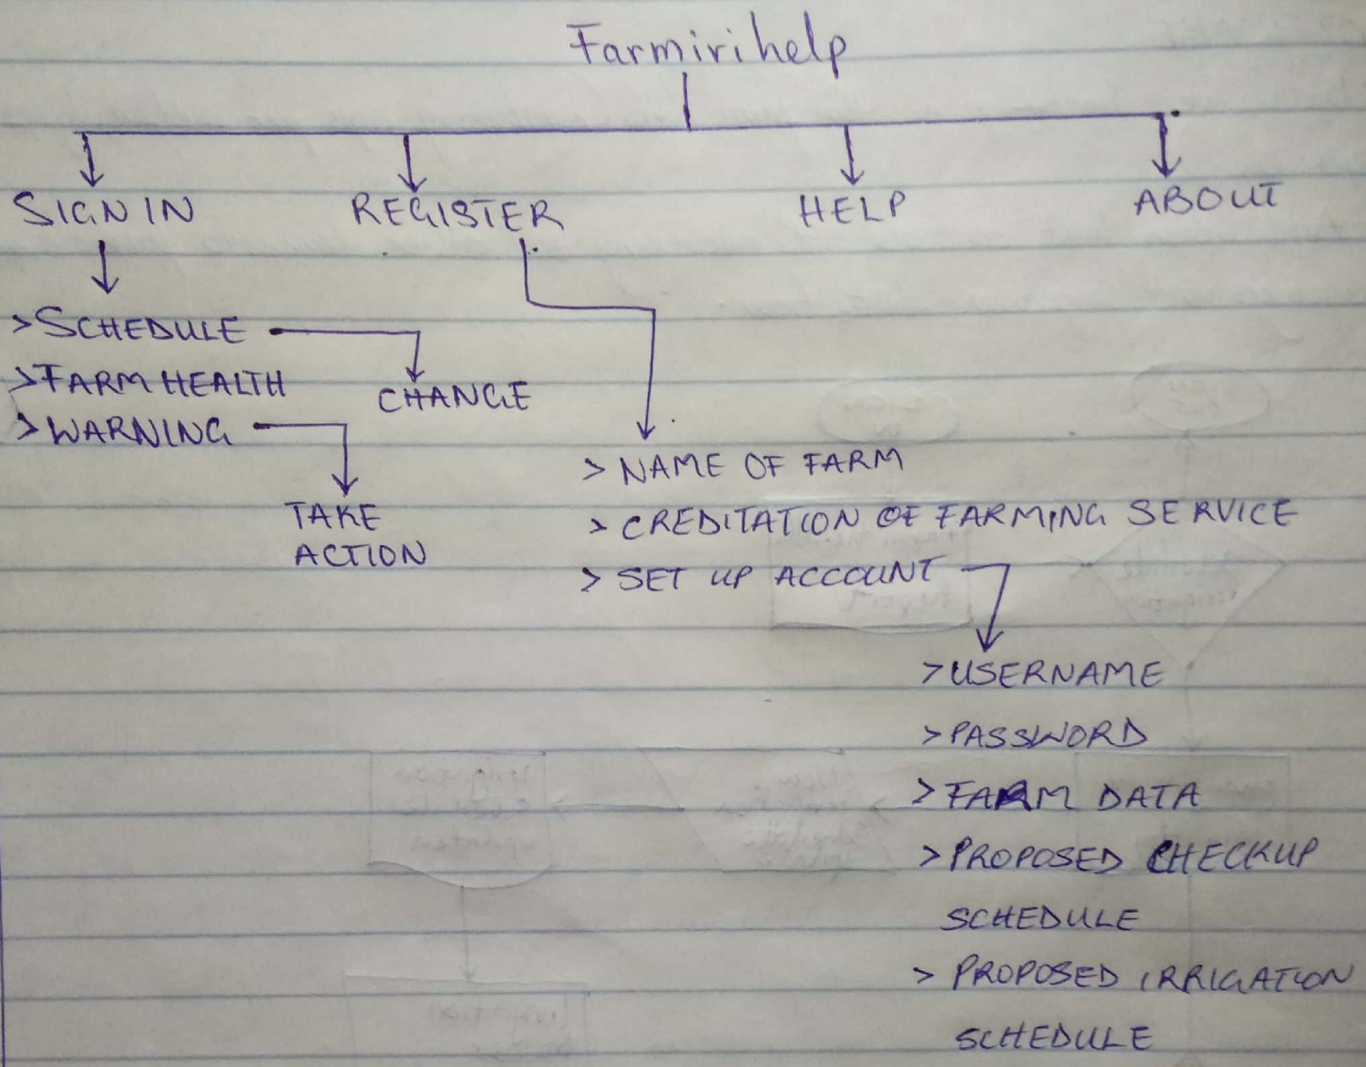 Farmirihelp
SIGN IN REGISTER HELP ABOUT
>SCHEDULE
>FARM HEALTH
CHANGE
>WARNING
> NAME OF FARM
TAKE
ACTION
> CREDITATION OF FARMING SERVICE
> SET UP ACCOUNT
>USERNAME
>PASSWORD
>FARM DATA
>PROPOSED CHECKUP
SCHEDULE
> PROPOSED IRRIGATION
SCHEDULE